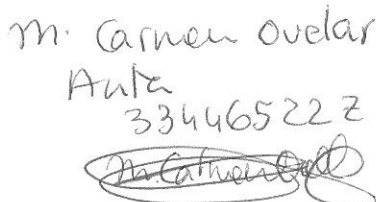 M. Carmen Ovelar
Anta
33446522 Z
M. Carmen Ovelar